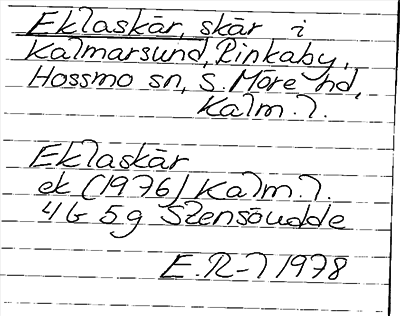 Eklaskär, skär i
Kalmarsund, Rinkaby,
Hossmo sn, S. Möre hd,
Kalm. l.
Eklaskär
ek (1976) Kalm. l.
4G 5g Stensöudde
E. R-l 1978